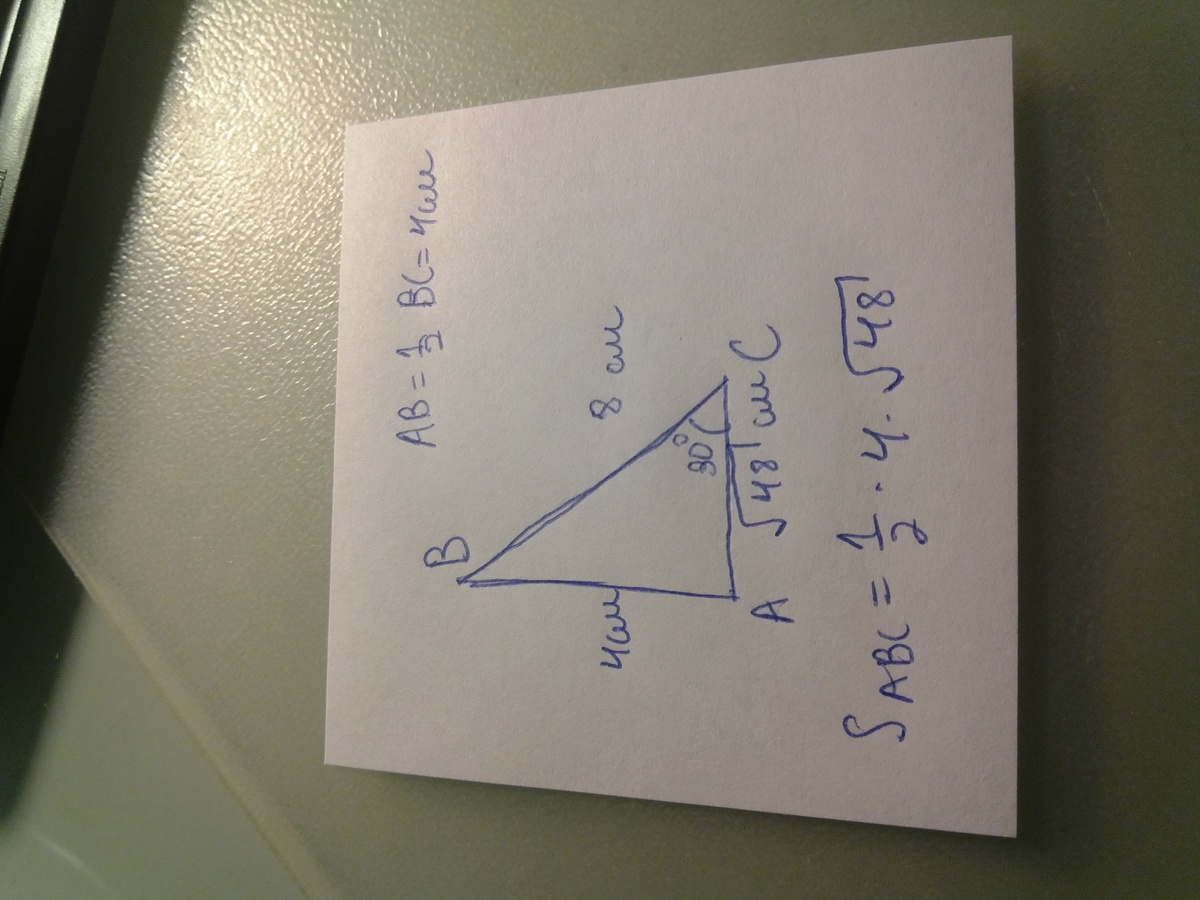 AB = 1/2 BC = 4см
B
8 см
4см
30°
A
√48 см
C
S ABC = 1/2 · 4 · √48